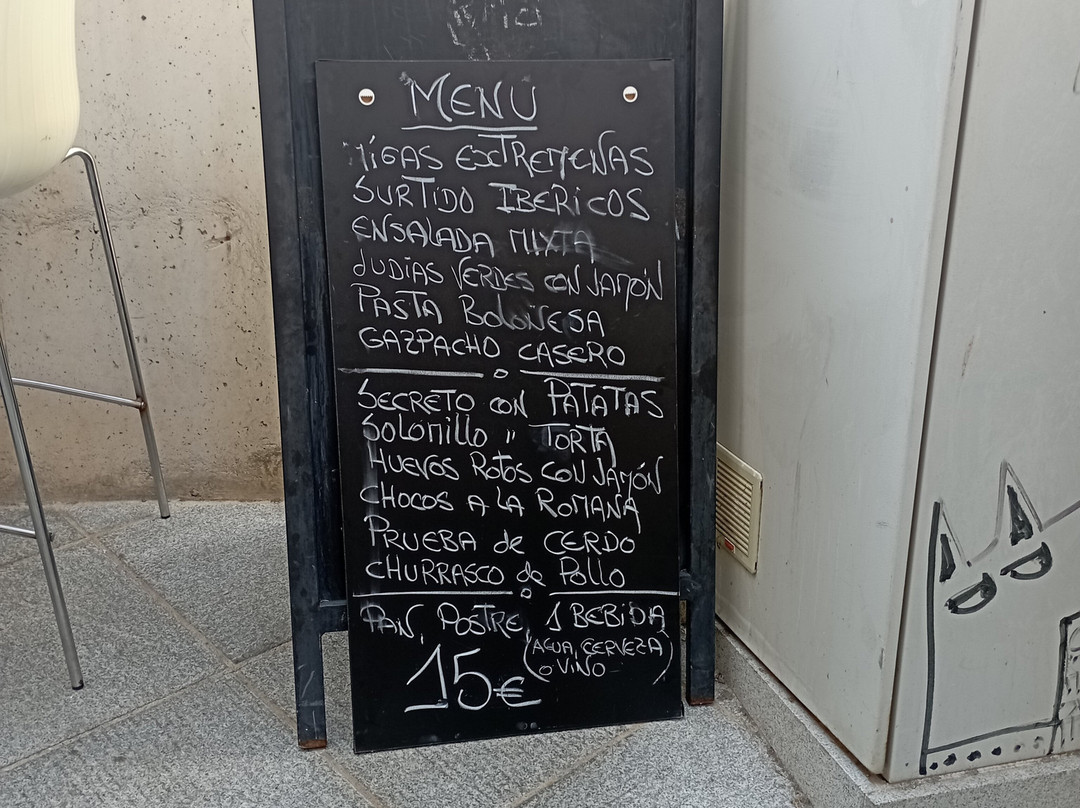 MENÚ
MIGAS EXTREMEÑAS
SURTIDO IBERICOS
ENSALADA MIXTA
JUDIAS VERDES CON JAMÓN
PASTA BOLOÑESA
GAZPACHO CASERO
SECRETO CON PATATAS
SOLOMILLO " TORTA
HUEVOS ROTOS CON JAMÓN
CHOCOS A LA ROMANA
PRUEBA de CERDO
CHURRASCO de POLLO
PAN, POSTRE, 1 BEBIDA
(AGUA, CERVEZA
O VINO)
15€